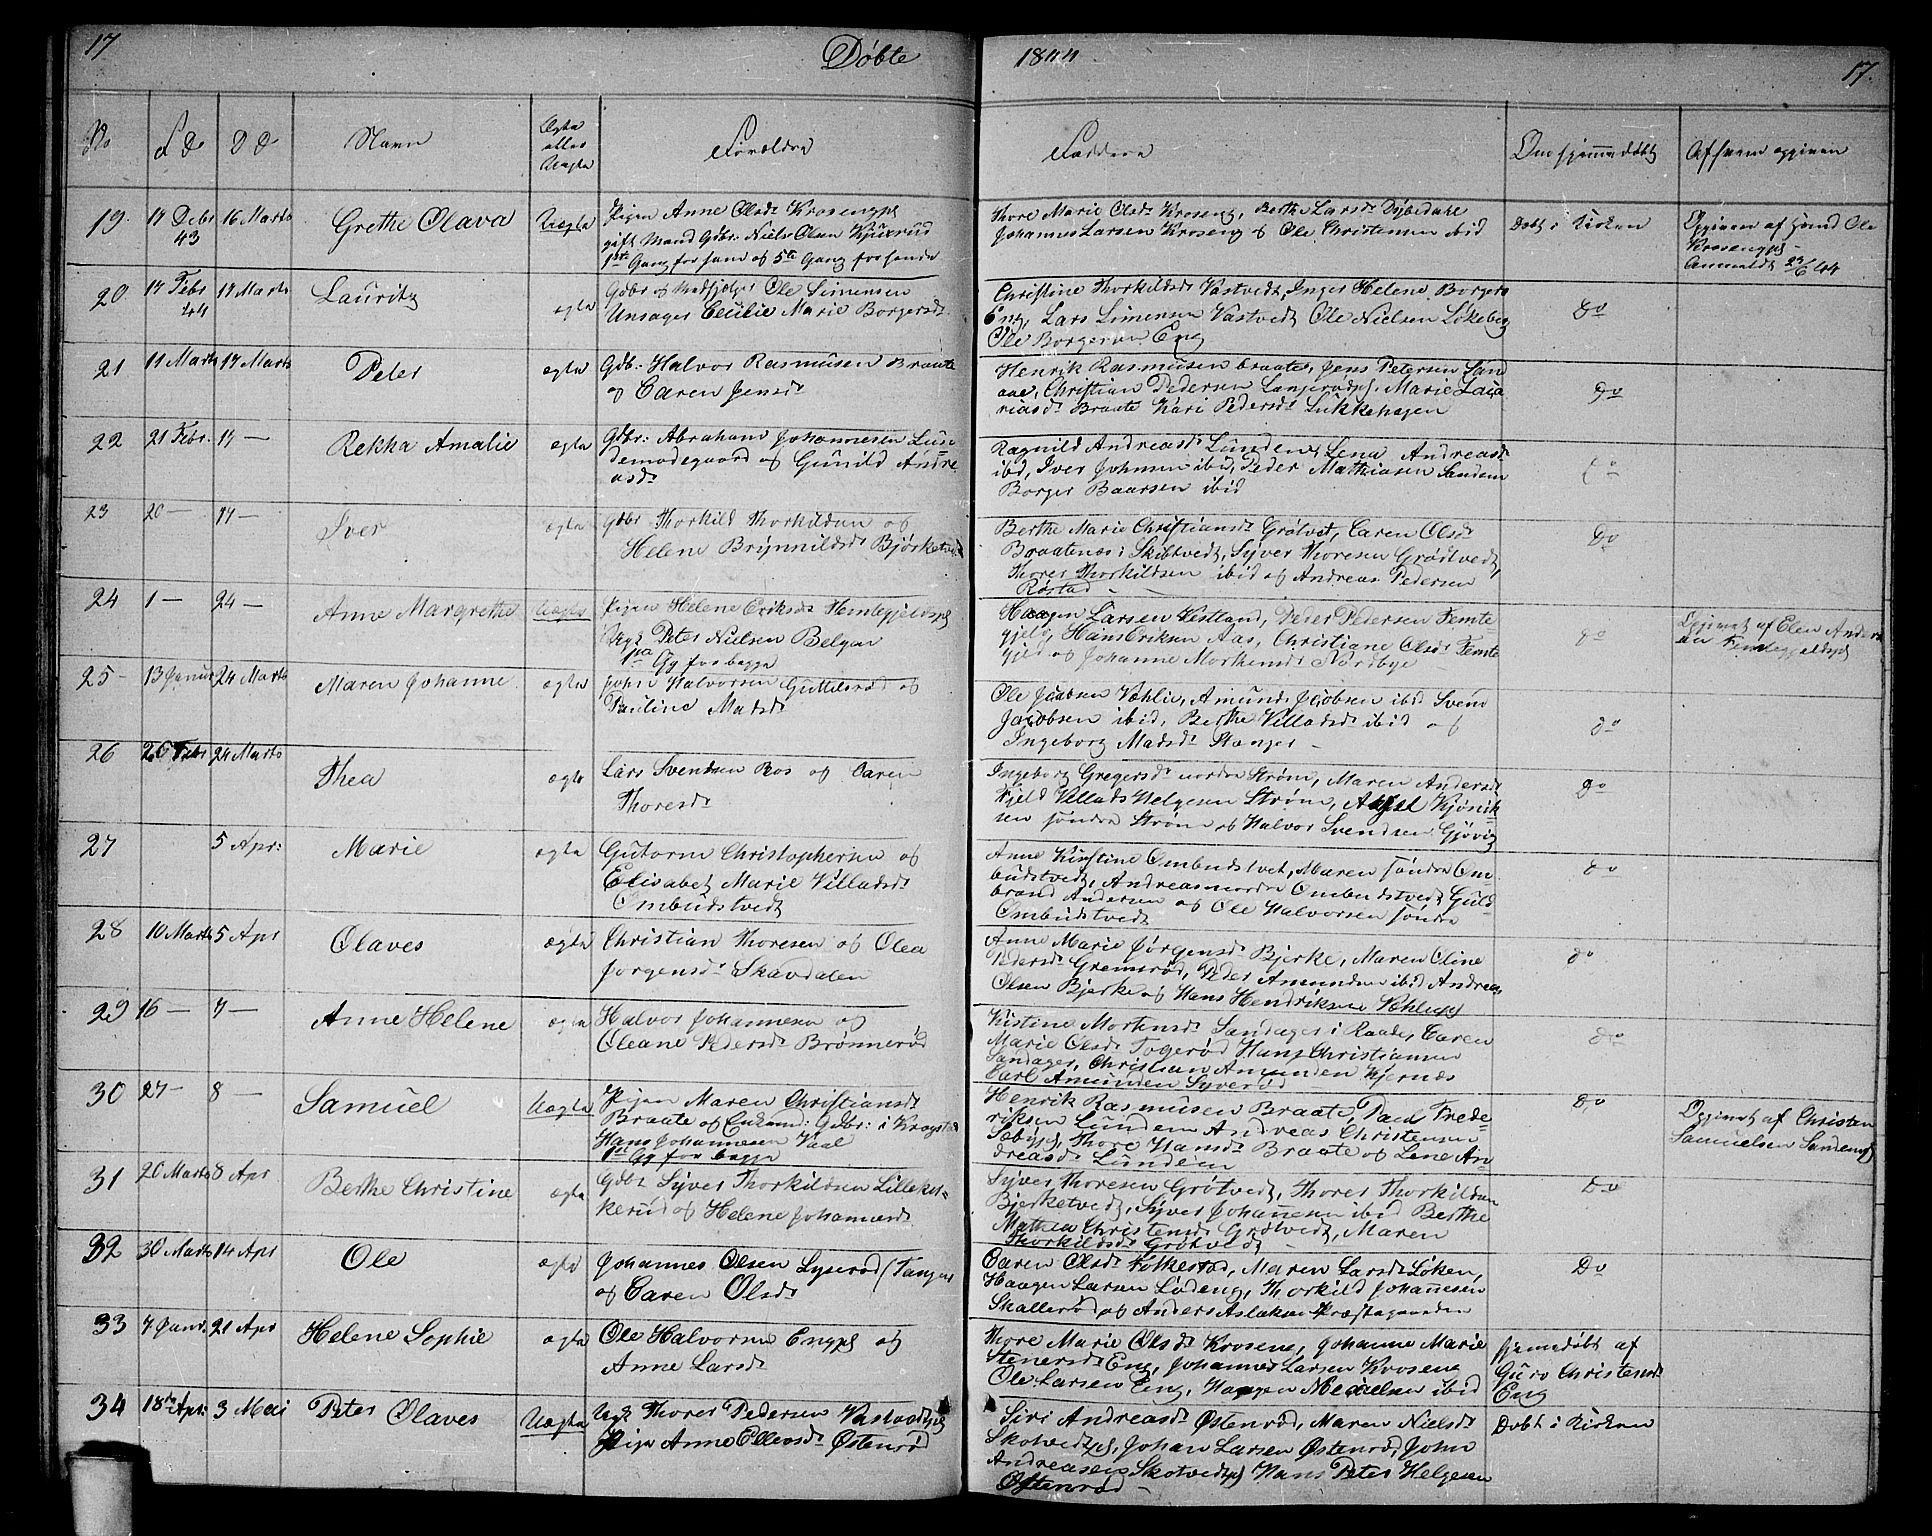 17 Døbte 1844 17.
No F D D D Navn Ægte eller Uægte Forældre Faddere Om hjemmedøbt Af hvem opgiven
19. 14 Debr 43 16 Marts Grethe Olava Uægte
Pigen Anne Olsdr Krosengpl
gift Mand Gdbr: Niels Olsen
1ste Gang for ham og 5te Gang for hende
Thore Marie Olsdr Kroseng, Berthe Larsdr
Johannes Larsen Kroseng og Ole Christensen ibid
Døbt i Kirken
Opgiven af Ole
Krosengpl
Anmeldt 29/6 44
20. 17 Febr 44 17 Marts Lauritz ægte
Gdbr og Ole Simensen
Unsager Cecilie Marie Borgersdr
Christine Thorkildsdr Vastvedt, Inger Helene Borgers
Eng, Lars Simensen Vastvedt, Ole Nielsen Løkeberg
Ole Borgersen Eng
Do
21 11 Marts 17 Marts Peter ægte
Gdb: Halvor Rasmusen Braate
og Caren Jensdr
Henrik Rasmusen braate, Jens Petersen San
aae, Christian Pedersen Langerødpl, Marie Laca
riasdr Braate Kari Pedersdr Lukkehagen
Do
22 21 Febr. 17 — Rekka Amalie ægte
Gdbr: Abraham Johannesen Lun
demodegaard og Gunild Andre
asdr
Ragnild Andreasdr Lunden, Lena Andreasdr
ibid, Iver Johnsen ibid, Peder Mathiasen Sandem
Borger Baarsen ibid
Do
23 20 — 17 — Iver ægte
Gdbr Thorkild Thorkildsen og
Helene Brynnildsdr Bjørketvedt
Berthe Marie Christiansdr Grøtvet, Caren Olsdr
Braatenæs i Skibtvedt, Syver Thoresen Grødtvedt,
Thores Thorkildsen ibid og Andreas Pedersen
Røstad —
Do
24 1 — 24 — Anne Margrethe Uægte
Pigen Helene Eriksdr Hemtegjeldspl
Ugk Peter Nielsen Belgen
1ste Gg for begge
Haagen Larsen Vestland, Peder Pedersen Femte-
gjeld, Hans Eriksen Aas, Christiane Olsdr Femte
gjeld og Johanne Nordbye
do
Opgivet af Elen Anders
en Femtegjeldspl
25 — 13 Januar 24 Marts Maren Johanne ægte
John Halvorsen Guttesrød og
Pauline Madsdr
Ole Jacobsen Vehlie, Amund Jacobsen ibid Svend
Jacobsen ibid, Berthe Villadsdr ibid og
Ingeborg Madsdr Stanger —
do
26 26 Febr 24 Marts Thea ægte
Lars Svendsen Ros og Caren
Thoresdr
Ingeborg Gregersdr nordre Strøm, Maren Andersdr
Fjeld Villads Helgesen Strøm,
sen søndre Strøm og Halvor Svendsen Gjøvig
do
27 5 Apr: Marie ægte
Gutorm Christophersen og
Elisabet Marie Villadsdr
Ombudstvedt
Anne Kirstine Ombudstvet, Maren søndre Om-
budstvedt, Andreas nordre Ombudstvedt Guld-
brand Andersen og Ole Halvorsen søndre
Ombudstvedt
do
28 10 Marts 5 Apr Olaves ægte
Christian Thoresen og Olea
Jorgensdr Skavdalen
Anne Marie Jørgensdr Bjerke, Maren Oline
Pedersdr Gremsrød, Peder Amundsen ibid Andreas
Olsen Bjerke og Hans Hendriksen
do
29 16 — 7 — Anne Helene ægte
Halvor Johannesen og
Oleane Pedersdr Brønnerød
Kistine Mortensdr Sandager i Raade, Caren
Marie Olsdr Togerød Hans Christiansen
Sandager, Christian Amundsen Kjernæs
Carl Amundsen Syverød
do
30 27 — 8 — Samuel Uægte
Pigen Maren Christiansdr
Braate og Enkem: Gdbr: i Kragstad
Hans Johannesen Vaal
1ste Gg for begge
Henrik Rasmusen Braate, Paul Frede-
riksen Lundem Andreas Christensen
Sæbypl, Thore Hansdr Braate og Lene An-
dreasdr Lundem
Do
Opgivet af Christen
Samuelsen Sandengpl
31 20 Marts 8 Apr Berthe Christine ægte
Gdbr Syver Thorkildsen Lilleket-
kerud og Helene Johannesdr
Syver Thoresen Grøtvedt, Thores Thorkildsen
Bjerketvedt, Syver Johannesen ibid Berthe
Mathea Christensdr Grøtvedt, Maren
Thorkildsdr Grøtvedt —
Do
32 30 Marts 14 Apr Ole ægte
Johannes Olsen Lyserød (Tangen
og Caren Olsdr
Caren Olsdr Folkestad, Maren Larsdr Løken,
Haagen Larsen Lødeng, Thorkild Johannesen
Skallerød og Anders Aslaksen Præstegaarden
Do
33 7 Janr. 21 Apr Helene Sophie ægte
Ole Halvorsen Engpl og
Anne Larsdr
Thore Marie Olsdr Krosene, Johanne Marie
Stenersdr Eng, Johannes Larsen Krosene
Ole Larsen Eng, Haagen ibid
hjemedøbt af
Guro Christensdr
Eng
34 18de Apr: 3 Mai Peter Olaves Uægte
Ugk Thores Pedersen Vastvedtpl
Pige Anne Ellensdr Østenrød
Siri Andreasdr Østenrød, Maren Nielsdr
Skotvedtpl, Johan Larsen Østenrød, John
Andreasen Skotvedtpl Hans Peter Helgesen
Østenrød —
Døbt i Kirken